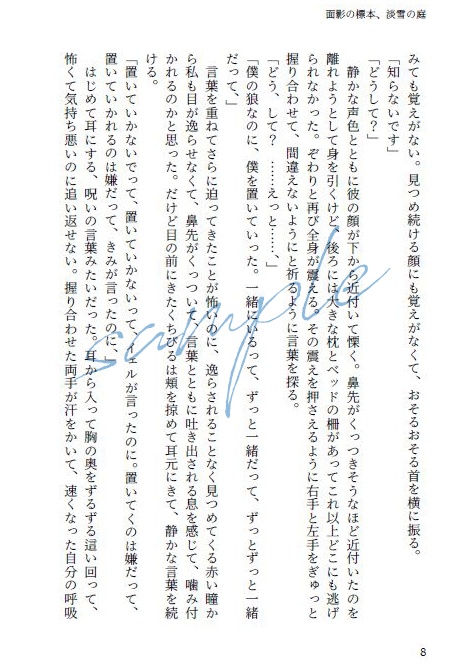 面影の標本、淡雪の庭
みても覚えがない。見つめ続ける顔にも覚えがなくて、おそるおそる首を横に振る。
「知らないです」
「どうして？」
静かな声色とともに彼の顔が下から近付いて慄く。鼻先がくっつきそうなほど近付いたのを
離れようとして身を引くけど、後ろには大きな枕とベッドの柵があってこれ以上どこにも逃げ
られなかった。ぞわりと再び全身が震える。その震えを押さえるように右手と左手をぎゅっと
握り合わせて、間違えないようにと祈るように言葉を探る。
「どう、して？　……えっと……、」
「僕の狼なのに、僕を置いていった。一緒にいるって、ずっと一緒だって、ずっとずっと一緒
だって、」
言葉を重ねてさらに迫ってきたことが怖いのに、逸らされることなく見つめてくる赤い瞳か
ら私も目が逸らせなくて、鼻先がくっついて、言葉とともに吐き出される息を感じて、噛み付
かれるのかと思った。だけど目の前にきたくちびるは頬を掠めて耳元にきて、静かな言葉を続
ける。
「置いていかないでって、置いていかないって、イェルが言ったのに。置いてくのは嫌だって、
置いていかれるのは嫌だって、きみが言ったのに、」
はじめて耳にする、呪いの言葉みたいだった。耳から入って胸の奥をずるずる這い回って、
怖くて気持ち悪いのに追い返せない。握り合わせた両手が汗をかいて、速くなった自分の呼吸
sample
8